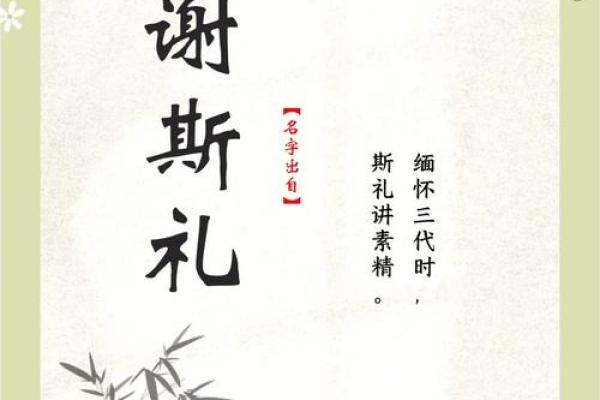 谢斯礼
【名字出自】
缅怀三代时，
斯礼讲素精。